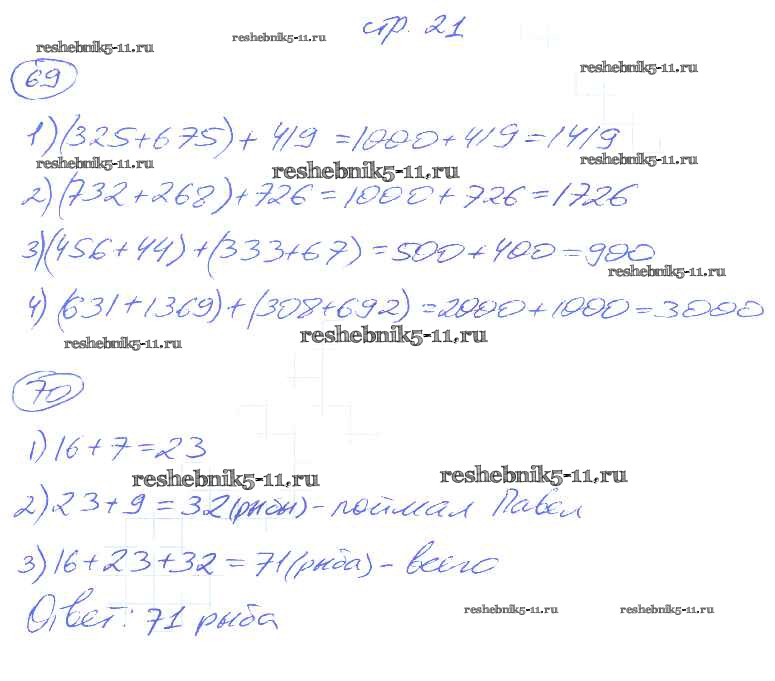 стр. 21
reshebnik5-11.ru
reshebnik5-11.ru
reshebnik5-11.ru
69
1) (325+675) + 419 = 1000 + 419 = 1419
reshebnik5-11.ru
reshebnik5-11.ru
reshebnik5-11.ru
2) (732 + 268) + 726 = 1000 + 726 = 1726
3) (456 + 44) + (333+67) = 500 + 400 = 900
reshebnik5-11.ru
4) (631 + 1369) + (308 + 692) = 2000 + 1000 = 3000
reshebnik5-11.ru
reshebnik5-11.ru
70
1) 16 + 7 = 23
reshebnik5-11.ru
reshebnik5-11.ru
2) 23 + 9 = 32 (рыбы) - поймал Павел
3) 16 + 23 + 32 = 71 (рыба) - всего
Ответ: 71 рыба
reshebnik5-11.ru
reshebnik5-11.ru